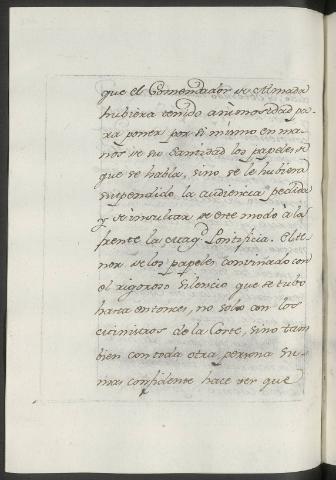 que el Comendador de Almada
hubiera tenido animosidad pa-
ra poner por si mismo en ma-
nos de su Santidad los papeles de
que se habla, sino se le hubiera
suspendido la audiencia pedida
y se insultar de este modo à la
frente la Magd Pontificia. El te-
nor de los papeles convinado con
el rigoroso silencio que se tubo
hasta entonces, no solo con los
Ministros de la Corte, sino tam
bien con toda otra persona su-
mas confidente hace ver que